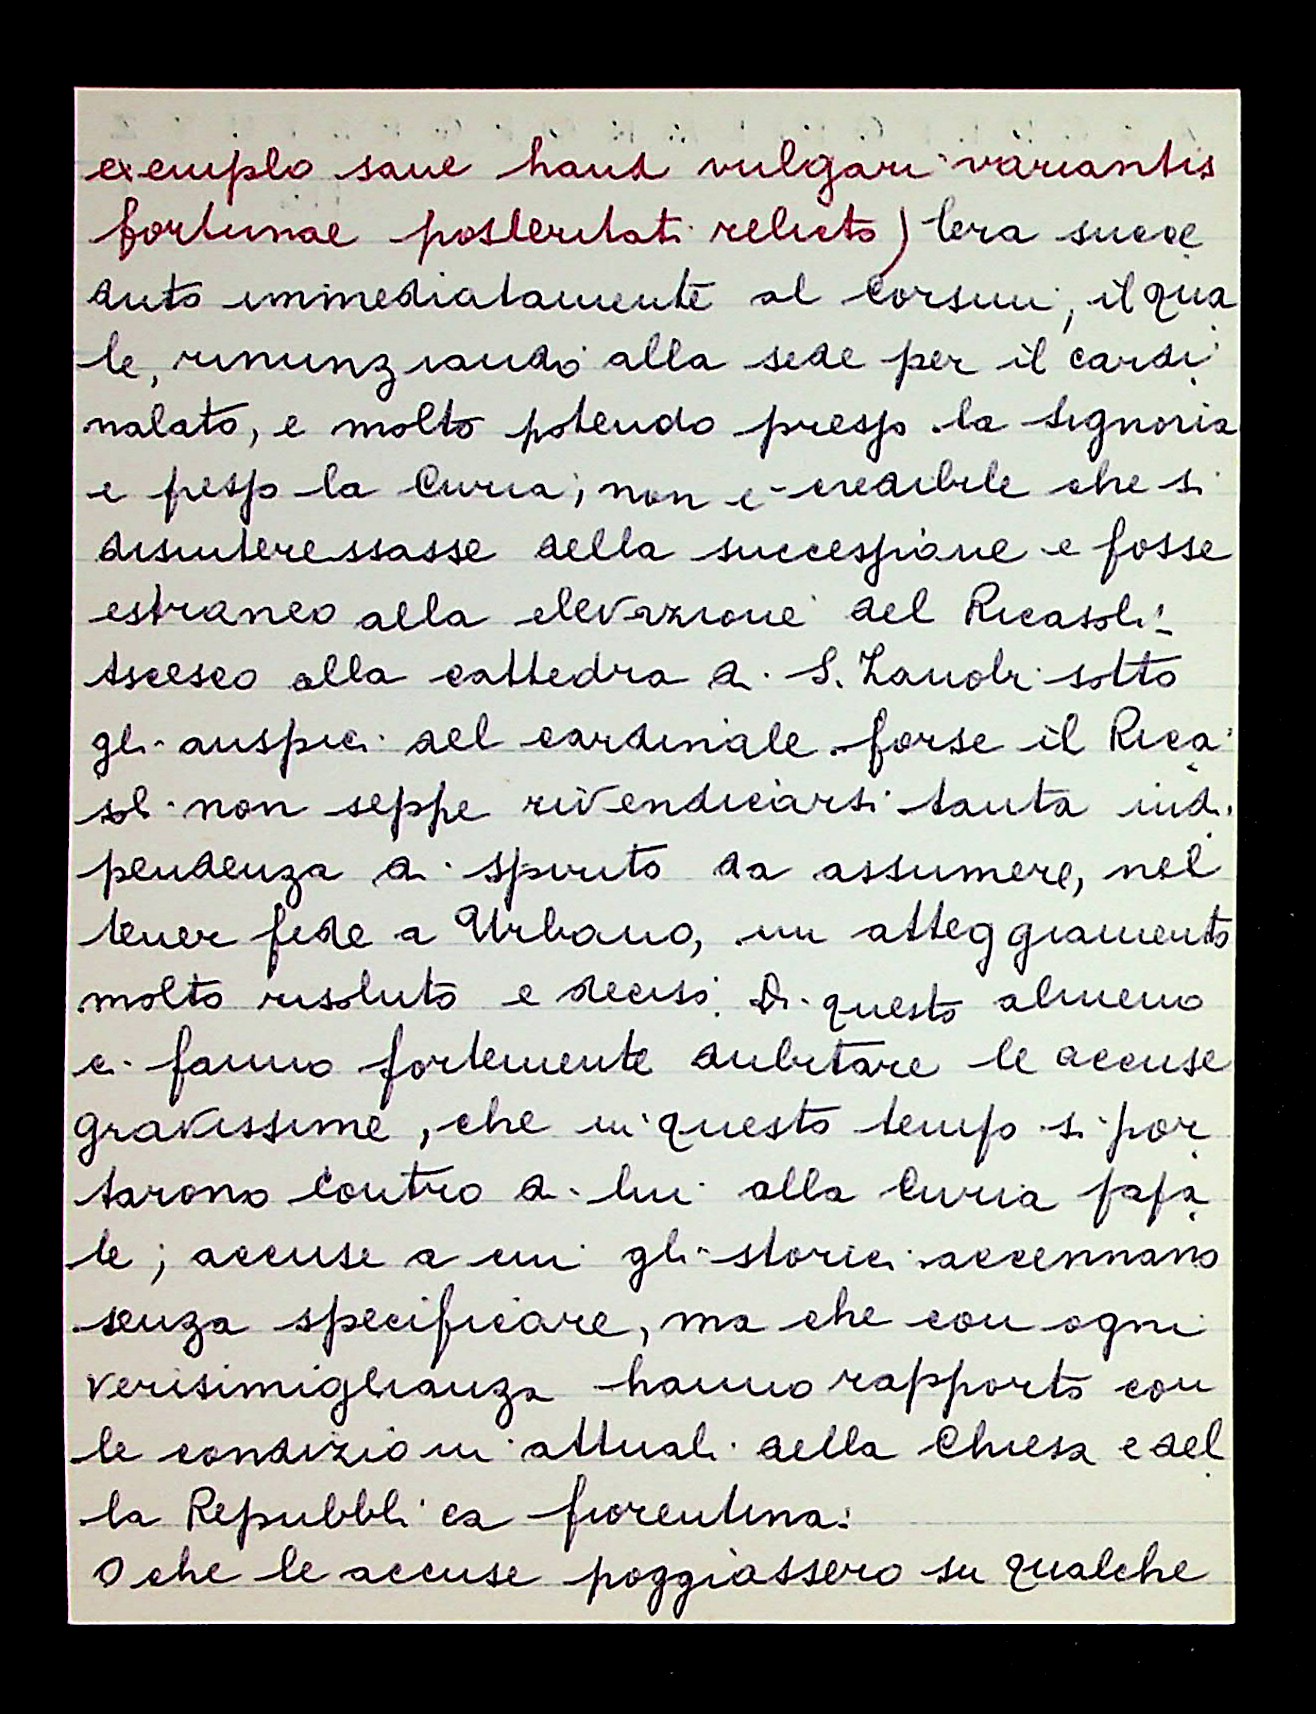 exemplo sane haud vulgari variantis
fortunae posteritati relicto) era succe
duto immediatamente al Corsini, il qua
le, rinunziando alla sede per il cardi
nalato, e molto potendo presso la Signoria
e presso la Curia, non è credibile che si
disinteressasse della successione e fosse
estraneo alla elevazione del Ricasoli.
Asceso alla cattedra di S. Zanobi sotto
gli auspici del cardinale forse il Rica
soli non seppe rivendicarsi tanta indi
pendenza di spirito da assumere, nel
tener fede a Urbano, un atteggiamento
molto risoluto e deciso. Di questo almeno
ci fanno fortemente dubitare le accuse
gravissime, che in questo tempo si por
tarono contro di lui alla Curia papa
le; accuse a cui gli storici accennano
senza specificare, ma che con ogni
verisimiglianza hanno rapporto con
le condizioni attuali della Chiesa e del
la Repubblica fiorentina.
O che le accuse poggiassero su qualche